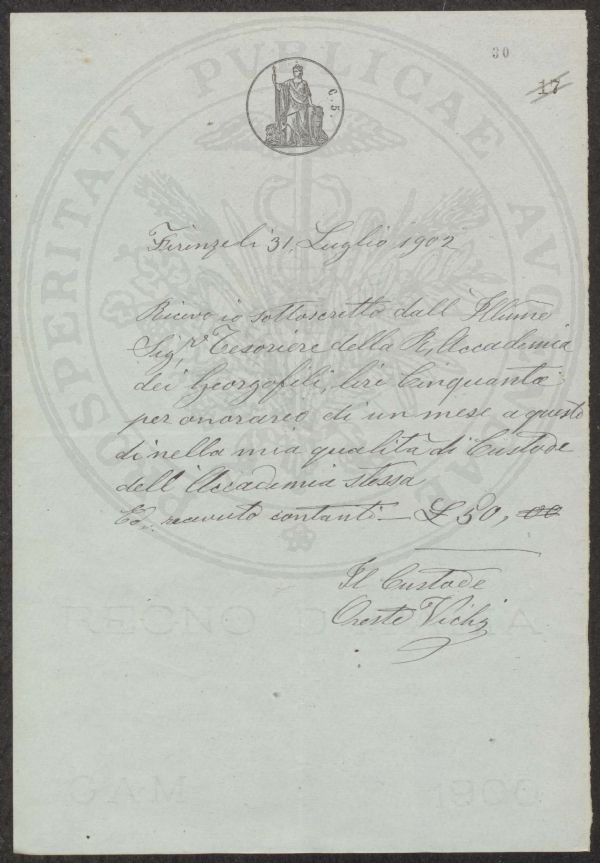 30
17
C. 5.
PROSPERITATI PVBLICAE AVGENDAE
Firenze li 31. Luglio 1902
Ricevo io sottoscritto dall' Illũme
Sigr. Tesoriere della R. Accademia
dei Georgofili, lire Cinquanta
per onorario di un mese a questo
dì nella mia qualità di Custode
dell' Accademia stessa
receuto contanti — £ 50, 00
Il Custode
Oreste Vichi